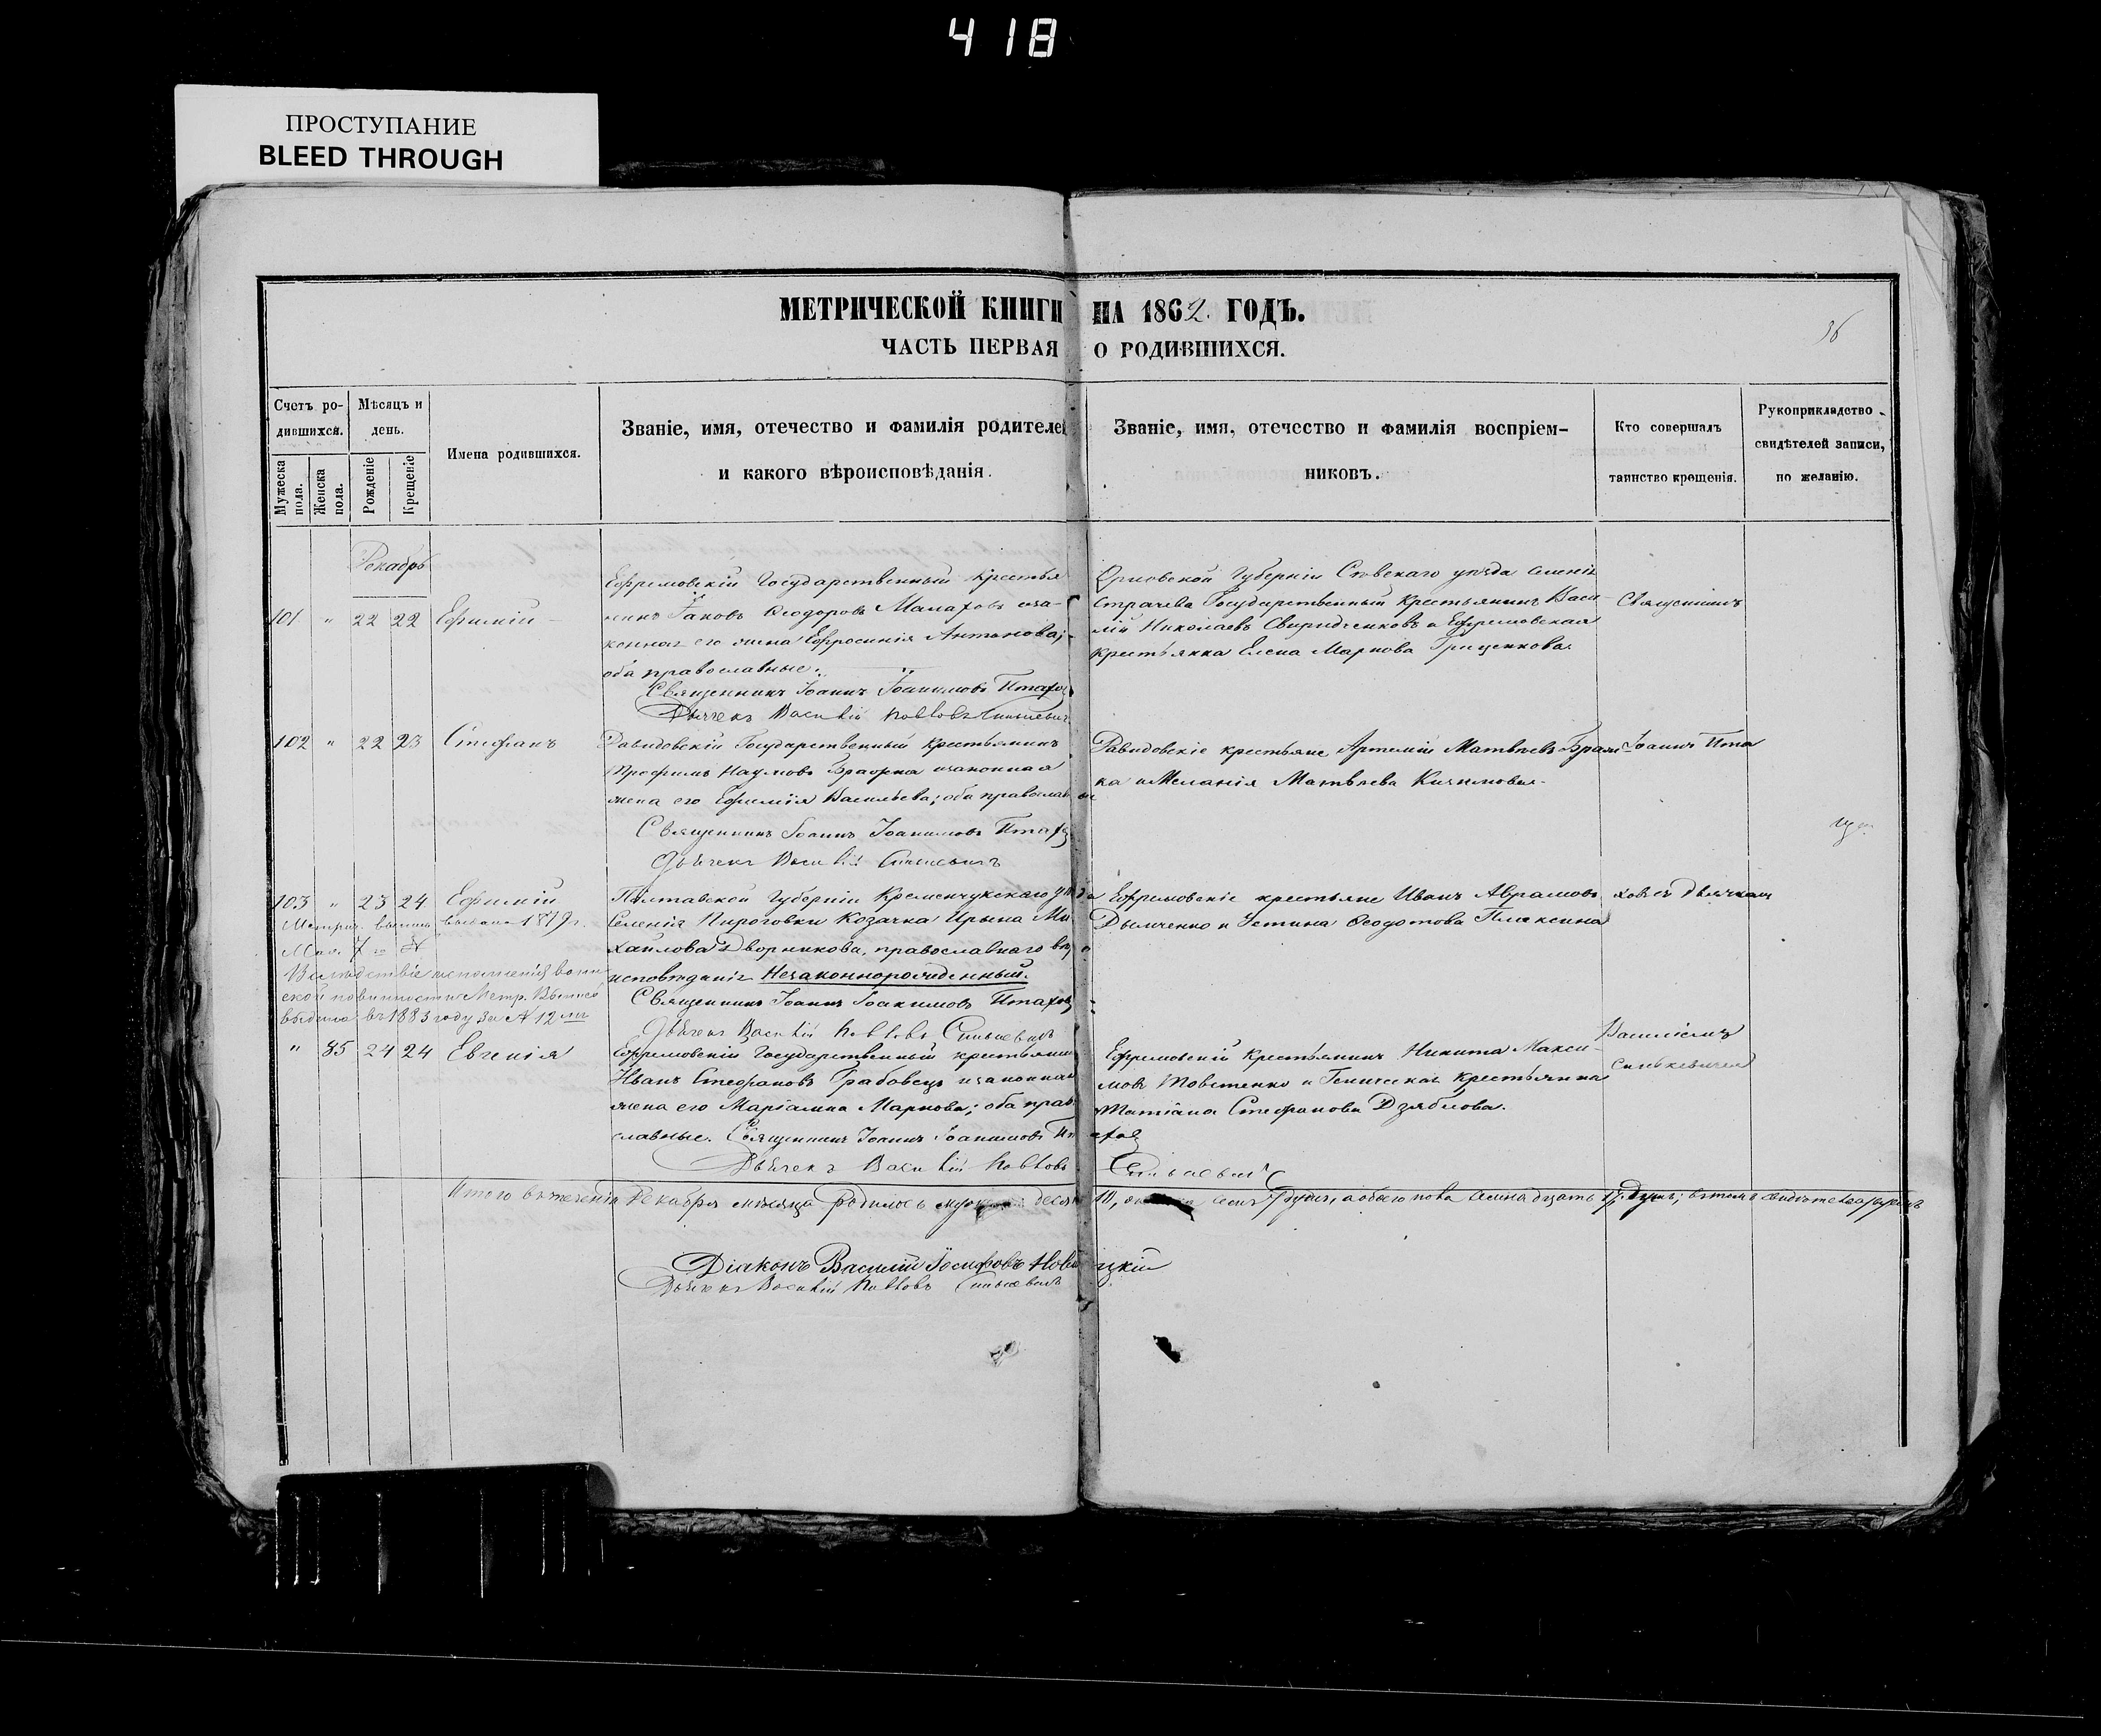 418
ПРОСТУПАНИЕ
BLEED THROUGH
МЕТРИЧЕСКОЙ КНИГИ НА 1862. ГОДЪ.
ЧАСТЬ ПЕРВАЯ О РОДИВШИХСЯ.
Счетъ ро-
дившихся.
Мѣсяцъ и
день.
Мужеска пола.
Женска пола.
Рожденіе
Крещеніе
Имена родившихся.
Званіе, имя, отечество и фамилія родителей
и какого вѣроисповѣданія.
Званіе, имя, отечество и фамилія воспріем-
никовъ.
Кто совершалъ
таинство крещенія.
Рукоприкладство
свидѣтелей записи,
по желанію.
Декабрь
101 " 22 22 Ефимій
Ефремовскій Государственный крестья
нинъ Іаковъ Ѳеодоровъ Малаховъ иза-
конная его жена Ефросинія Антонова;
оба православные.
Священникъ Іоаннъ Іоакимовъ
Дьячекъ Василій
Орловской Губерніи Сѣвскаго уѣзда селенія
Страчева Государственный Крестьянинъ Васи-
лій Николаевъ Свиридченковъ и Ефремовская
крестьянка Елена Маркова Гриценкова.
Священникъ
102 " 22 23 Стефанъ
Давидовскій Государственный крестьянинъ
Трофимъ Наумовъ изаконная
жена его Ефимія Васильева; оба православные
Священникъ Іоаннъ Іоакимовъ
Дьячекъ Василій
Давидовскіе крестьяне Артемій Матвѣевъ
ка и Меланія Матвѣева
Іоаннъ Пта
103 " 23 24 Ефимій
Полтавской Губерніи Кременчукскаго уѣзда
Селенія Пироговки Козачка Ирина Ми
хайлова Дворникова, православнаго вѣро
исповѣданія Незаконнорожденный.
Священникъ Іоаннъ Іоакимовъ Птаховъ
Дьячекъ Василій Павловъ Синькевичъ
Ефремовскіе крестьяне Иванъ Аврамовъ
Дымченко и Устина Ѳеодотова Плаксина
ховъ съ дьячкомъ
Метрич. выпись выдана 1879 г.
Вслѣдствіе исполненія воин
ской повинности Метр. Выпись
выдана въ 1883 году за № 12
" 85 24 24 Евгенія
Ефремовскій Государственный крестьянинъ
Иванъ Стефановъ Грабовецъ изаконная
жена его Маріамна Маркова; оба право
славные. Священникъ Іоаннъ Іоакимовъ Птаховъ
Дьячекъ Василій Павловъ Синькевичъ
Ефремовскій Крестьянинъ Никита Макси-
мовъ Товстенко и Геническая Крестьянка
Татіана Стефанова Дзяблова.
Василіемъ
Синькевичемъ
Итого въ теченіи Декабря мѣсяца родилось десять 10, семь 7 душъ, а обоего пола семнадцать 17 душъ;
Діаконъ Василій Іосифовъ Новицкій
Дьячекъ Василій Павловъ Синькевичъ